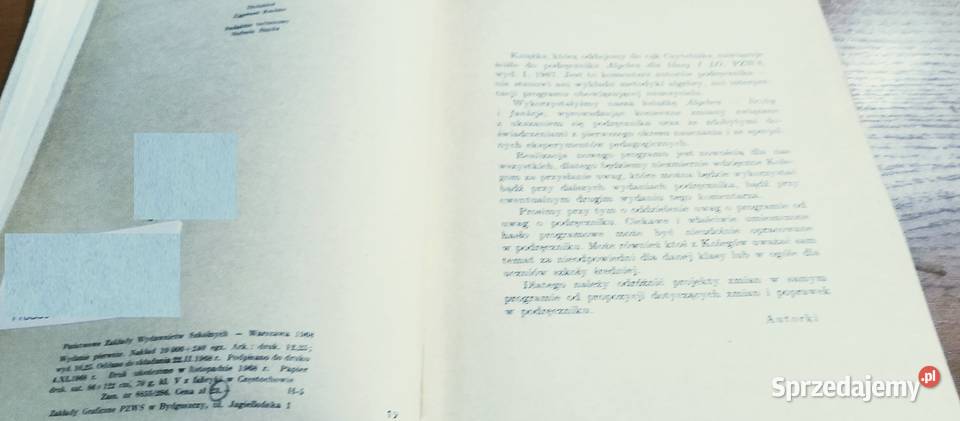 Redaktor techniczny
Państwowe Zakłady Wydawnictw Szkolnych — Warszawa 1968
Wydanie pierwsze. Nakład 10 000+240 egz. Ark.: druk.
wyd. 10,25. Oddano do składania 22.II.1968 r. Podpisano do druku
4.XI.1968 r. Druk ukończono w listopadzie 1968 r. Papier
druk. sat. 86×122 cm, 70 g, kl. V z fabryki w Częstochowie
Zam. nr Cena zł
Zakłady Graficzne PZWS w Bydgoszczy, ul. Jagiellońska 1
Książka, którą oddajemy do rąk Czytelnika, nawiązuje
ściśle do podręcznika Algebra dla klasy I LO, PZWS,
wyd. I, 1967. Jest to komentarz autorów podręcznika
nie stanowi ani wykładu metodyki algebry, ani interpre-
tacji programu obowiązującej nauczyciela.
Wykorzystałyśmy naszą książkę Algebra — liczby
i funkcje, wprowadzając konieczne zmiany związane
z ukazaniem się podręcznika oraz ze zdobytymi do-
świadczeniami z pierwszego okresu nauczania i ze specjal-
nych eksperymentów pedagogicznych.
Realizacja nowego programu jest nowością dla nas
wszystkich, dlatego będziemy niezmiernie wdzięczne Kole-
gom za przysłanie uwag, które można będzie wykorzystać
bądź przy dalszych wydaniach podręcznika, bądź przy
ewentualnym drugim wydaniu tego komentarza.
Prosimy przy tym o oddzielenie uwag o programie od
uwag o podręczniku. Ciekawe i właściwie umieszczone
hasło programowe może być nieudolnie opracowane
w podręczniku. Może również ktoś z Kolegów uważać sam
temat za nieodpowiedni dla danej klasy lub w ogóle dla
uczniów szkoły średniej.
Dlatego należy odróżnić projekty zmian w samym
programie od propozycji dotyczących zmian i poprawek
w podręczniku.
Autorki
Sprzedajemy.pl